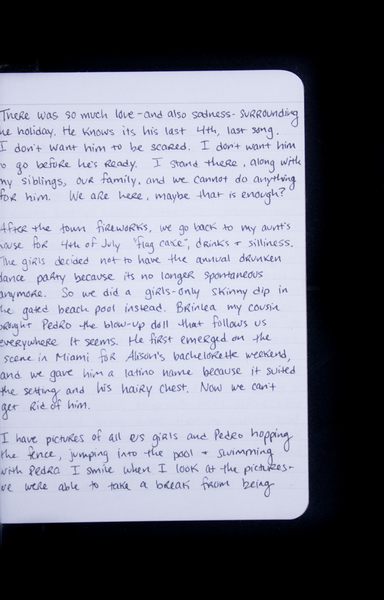 There was so much love - and also sadness - surrounding
he holiday. He knows its his last 4th, last song.
I don't want him to be scared. I don't want him
to go before he's ready. I stand there, along with
my siblings, our family, and we cannot do anything
for him. We are here, maybe that is enough?
After the town fireworks, we go back to my aunt's
house for 4th of July "flag cake", drinks + silliness.
The girls decided not to have the annual drunken
dance party because its no longer spontaneous
anymore. So we did a girls-only skinny dip in
the gated beach pool instead. Brinlea my cousin
brought Pedro the blow-up doll that follows us
everywhere it seems. He first emerged on the
scene in Miami for Alison's bachelorette weekend,
and we gave him a latino name because it suited
the setting and his hairy chest. Now we can't
get rid of him.
I have pictures of all us girls and Pedro hopping
the fence, jumping into the pool + swimming
with Pedro I smile when I look at the pictures -
we were able to take a break from being